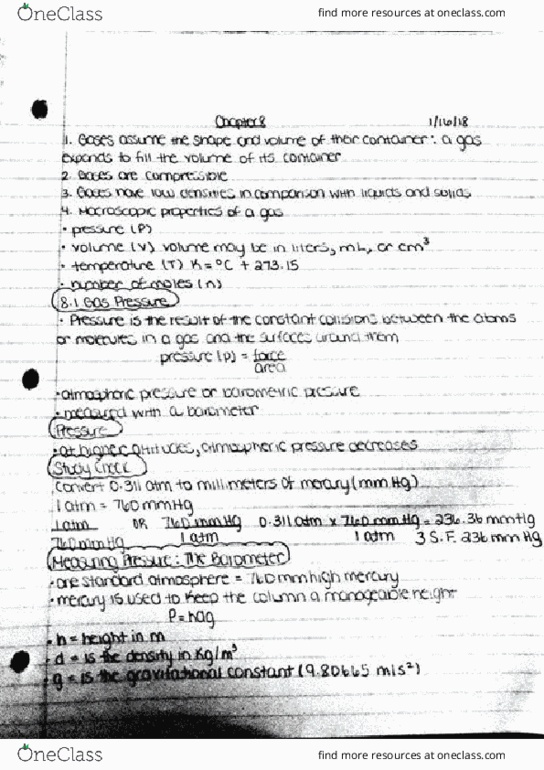 OneClass
find more resources at oneclass.com
Chapter 8 1/16/18
1. Gases assume the shape and volume of their container: a gas
expands to fill the volume of its container
2. Gases are compressible
3. Gases have low densities in comparison with liquids and solids
4. Macroscopic properties of a gas
• pressure (P)
• volume (V) volume may be in liters, mL, or cm³
• temperature (T) K = °C + 273.15
• number of moles (n)
8.1 Gas Pressure
• Pressure is the result of the constant collisions between the atoms
or molecules in a gas and the surfaces around them
pressure (P) = force
area
• atmospheric pressure or barometric pressure
• measured with a barometer
Pressure
• at higher altitudes, atmospheric pressure decreases
Study Check
Convert 0.311 atm to millimeters of mercury (mm Hg)
1 atm = 760 mmHg
1 atm OR 760 mmHg 0.311 atm x 760 mmHg = 236.36 mmHg
760 mmHg 1 atm 1 atm 3 S.F. 236 mm Hg
Measuring Pressure: The Barometer
• one standard atmosphere = 760 mm high mercury
• mercury is used to keep the column a manageable height
P = hdg
• h = height in m
• d = is the density in Kg/m³
• g = is the gravitational constant (9.80665 m/s²)
OneClass
find more resources at oneclass.com